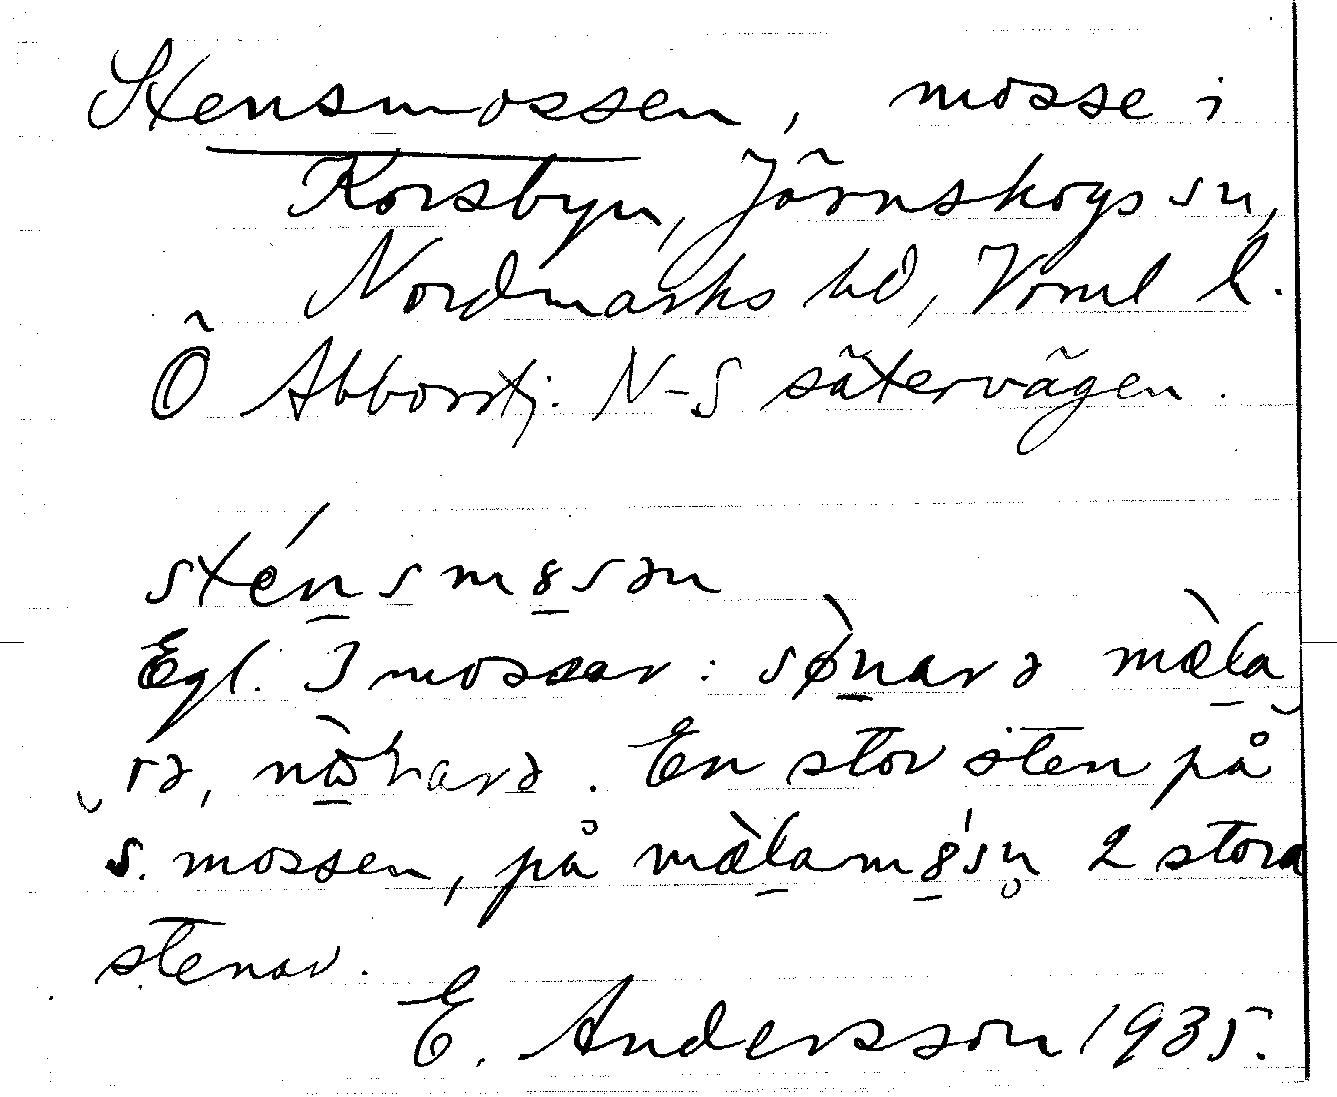 Stensmossen, mosse i
Korsbyn, Järnskogs sn,
Nordmarks hd, Värml l.
Ö Abbortj. N-S sätervägen.
sténsm8sən
Egl. 3 mossar: sø̀narə mæ̀la
rə, nòrarə. En stor sten på
s. mossen, på mæ̀lam8́sn̥ 2 stora
stenar.
E. Andersson 1935.